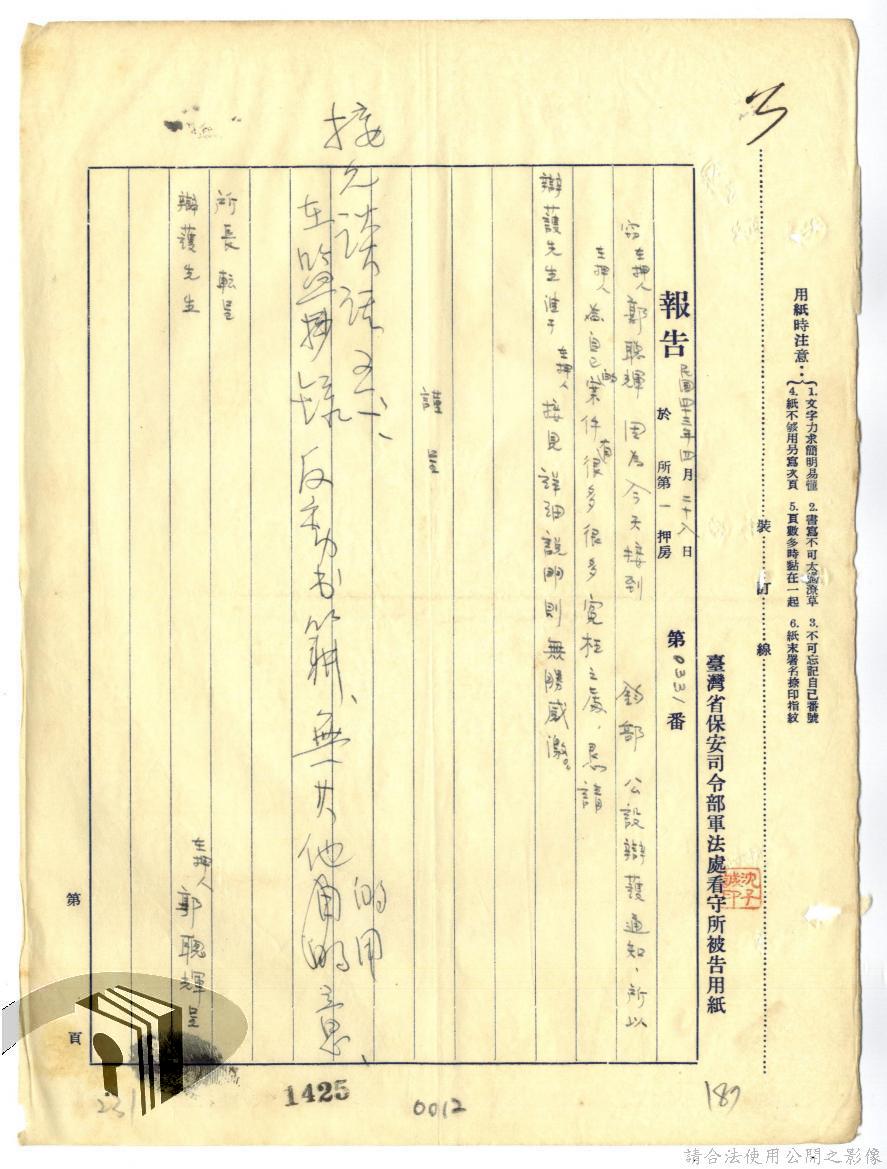 用紙時注意：
1. 文字力求簡明易懂　2. 書寫不可太過潦草　3. 不可忘記自己番號
4. 紙不够用另寫次頁　5. 頁數多時黏在一起　6. 紙末署名捺印指紋
裝訂線
臺灣省保安司令部軍法處看守所被告用紙
沈子誠印
報告 民國四十三年四月二十八日 於 所第一押房 第0331番
在押人郭聰輝因為今天接到 鈞部 公設辯護通知、所以
在押人 案件很多很多寃枉之處、懇請
辯護先生准予在押人接見詳細說明則無勝感激。
接見談話
在監抄錄反動書籍、無其他 的用意、
所長轉呈
辯護先生
在押人郭聰輝呈
第 頁
1425
0012
187
231
請合法使用公開之影像